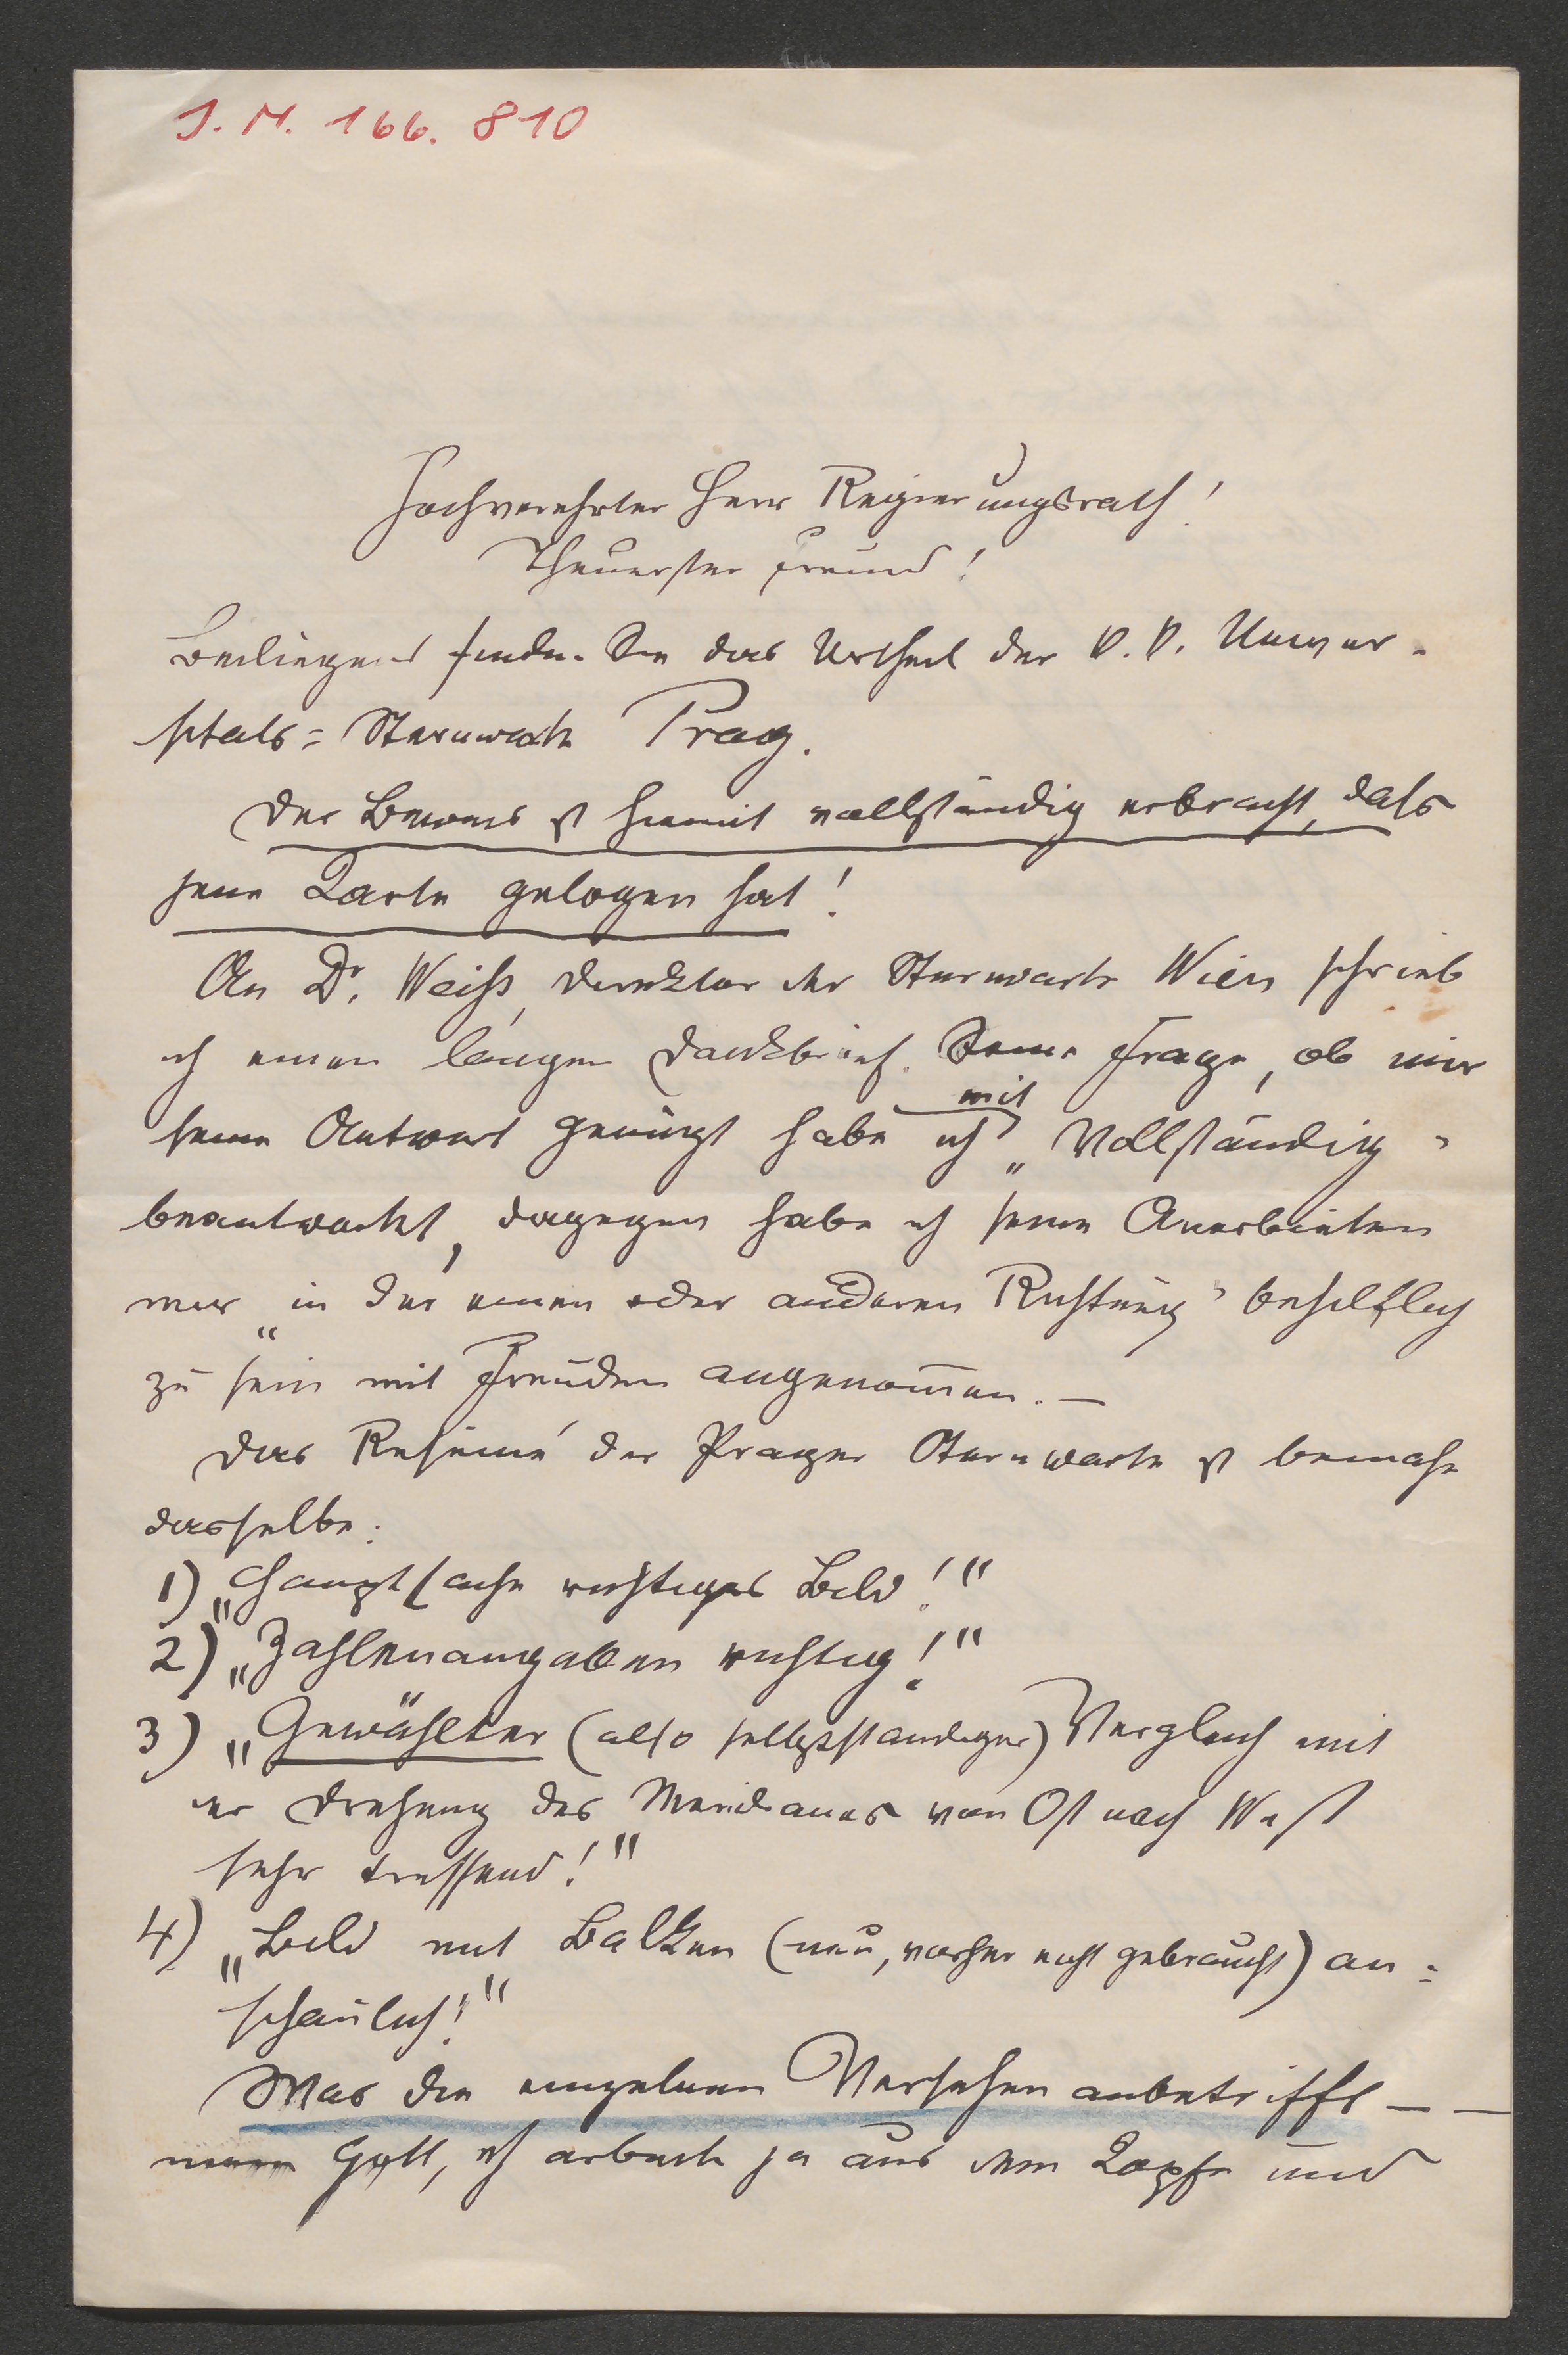 J. N. 166. 810
Hochverehrter Herr Regierungsrath!
Theuerster Freund!
Beiliegend finden Sie das Urtheil der k. k. Univer-
sitäts= Sternwarte Prag.
Der Beweis ist hiemit vollständig erbracht, dass
jene Karte gelogen hat!
An Dr. Weiss, Direktor der Sternwarte Wien schrieb
ich einen langen Dankbrief. Seine Frage, ob mir
seine Antwort genügt habe ich mit „Vollständig"
beantwortet, dagegen habe ich sein Anerbieten
mir „in der einen oder anderen Richtung" behilflich
zu sein mit Freuden angenom̄en. —
Das Resumé der Prager Sternwarte ist beinahe
dasselbe:
1) „Hauptsache richtiges Bild!"
2) „Zahlenangaben richtig!"
3) „Gewählter (also selbstständiger) Vergleich mit
der Drehung des Meridianes von Ost nach West
sehr treffend!"
4) „Bild mit Balken (neu, vorher nicht gebraucht) an=
schaulich!"
Was die einzelnen Versehen anbetrifft — —
mein Gott, ich arbeite ja aus dem Kopfe und